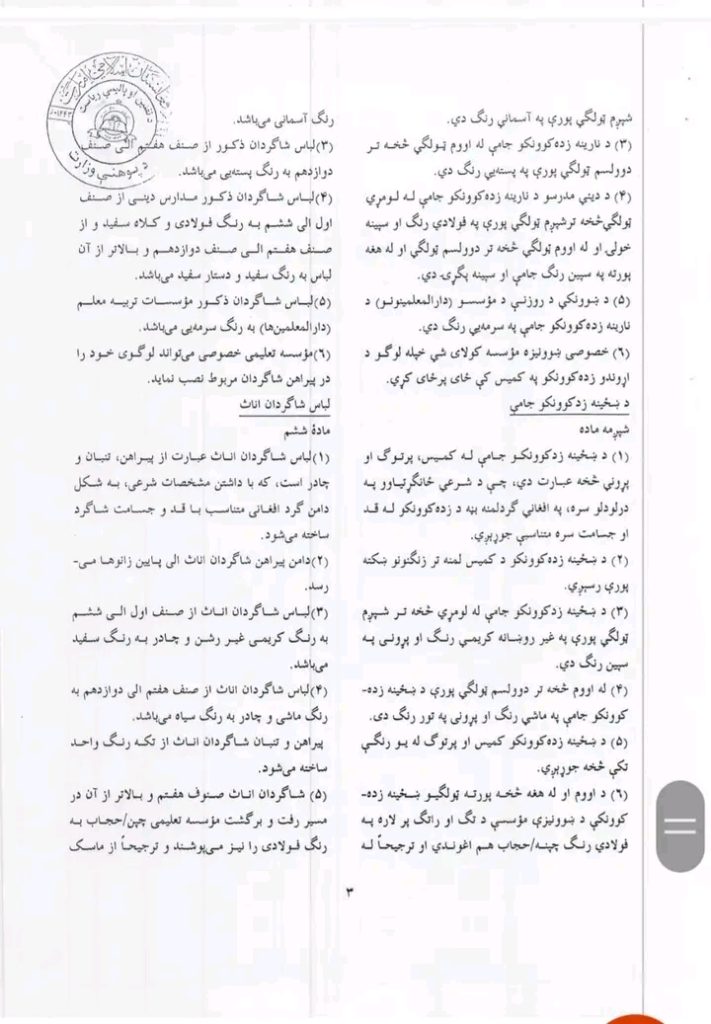 شپږم ټولګي پورې په آسماني رنګ دي.
(۳) د نارینه زده‌کوونکو جامې له اووم ټولګي څخه تر
دوولسم ټولګي پورې په پسته‌یي رنګ دي.
(۴) د دیني مدرسو د نارینه زده‌کوونکو جامې له لومړي
ټولګي‌څخه ترشپږم ټولګي پورې په فولادي رنګ او سپینه
خولۍ او له اووم ټولګي څخه تر دوولسم ټولګي او له هغه
پورته په سپین رنګ جامې او سپینه پګړۍ دي.
(۵) د ښوونکي د روزنې د مؤسسو (دارالمعلمینونو) د
نارینه زده‌کوونکو جامې په سرمه‌یي رنګ دي.
(۶) خصوصي ښوونیزه مؤسسه کولای شي خپله لوګو د
اړوندو زده‌کوونکو په کمیس کې ځای پرځای کړي.
د ښځینه زدکوونکو جامې
شپږمه ماده
(۱) د ښځینه زدکوونکو جامې له کمیس، پرتوګ او
پړوني څخه عبارت دي، چې د شرعي ځانګړتیاوو په
درلودلو سره، په افغاني ګردلمنه بڼه د زده‌کوونکو له قد
او جسامت سره متناسبې جوړیږي.
(۲) د ښځینه زده‌کوونکو د کمیس لمنه تر زنګنونو ښکته
پورې رسیږي.
(۳) د ښځینه زدکوونکو جامې له لومړي څخه تر شپږم
ټولګي پورې په غیر روښانه کریمي رنګ او پړونی په
سپین رنګ دي.
(۴) له اووم څخه تر دوولسم ټولګي پورې د ښځینه زده-
کوونکو جامې په ماشي رنګ او پړونی په تور رنګ دی.
(۵) د ښځینه زده‌کوونکو کمیس او پرتوګ له یو رنګې
ټکې څخه جوړیږي.
(۶) د اووم او له هغه څخه پورته ټولګیو ښځینه زده-
کوونکې د ښوونیزې مؤسسې د تګ او راتګ پر لاره په
فولادي رنګ چپنه/حجاب هم اغوندي او ترجیحاً له
رنگ آسمانی می‌باشد.
(۳)لباس شاگردان ذکور از صنف هفتم الی صنف
دوازدهم به رنگ پسته‌یی می‌باشد.
(۴)لباس شاگردان ذکور مدارس دینی از صنف
اول الی ششم به رنگ فولادی و کلاه سفید و از
صنف هفتم الی صنف دوازدهم و بالاتر از آن
لباس به رنگ سفید و دستار سفید می‌باشد.
(۵)لباس شاگردان ذکور مؤسسات تربیه معلم
(دارالمعلمین‌ها) به رنگ سرمه‌یی می‌باشد.
(۶)مؤسسه تعلیمی خصوصی می‌تواند لوگوی خود را
در پیراهن شاگردان مربوط نصب نماید.
لباس شاگردان اناث
مادۀ ششم
(۱)لباس شاگردان اناث عبارت از پیراهن، تنبان و
چادر است، که با داشتن مشخصات شرعی، به شکل
دامن گرد افغانی متناسب با قد و جسامت شاگرد
ساخته می‌شود.
(۲)دامن پیراهن شاگردان اناث الی پایین زانوها می-
رسد.
(۳)لباس شاگردان اناث از صنف اول الی ششم
به رنگ کریمی غیر رشن و چادر به رنگ سفید
می‌باشد.
(۴)لباس شاگردان اناث از صنف هفتم الی دوازدهم به
رنگ ماشی و چادر به رنگ سیاه می‌باشد.
پیراهن و تنبان شاگردان اناث از تکه رنگ واحد
ساخته می‌شود.
(۵) شاگردان اناث صنوف هفتم و بالاتر از آن در
مسیر رفت و برگشت مؤسسه تعلیمی چپن/حجاب به
رنگ فولادی را نیز می‌پوشند و ترجیحاً از ماسک
۳
د پوهنې وزارت